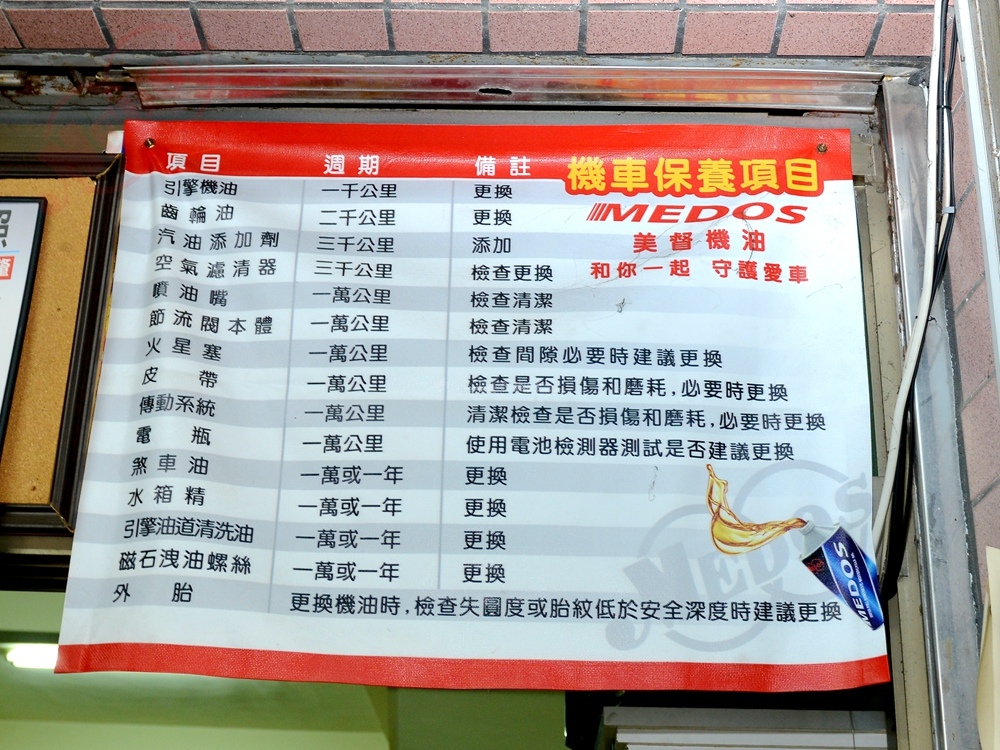 項目 週期 備註 機車保養項目
MEDOS
美督機油
和你一起 守護愛車
引擎機油 一千公里 更換
齒輪油 二千公里 更換
汽油添加劑 三千公里 添加
空氣濾清器 三千公里 檢查更換
噴油嘴 一萬公里 檢查清潔
節流閥本體 一萬公里 檢查清潔
火星塞 一萬公里 檢查間隙必要時建議更換
皮帶 一萬公里 檢查是否損傷和磨耗,必要時更換
傳動系統 一萬公里 清潔檢查是否損傷和磨耗,必要時更換
電瓶 一萬公里 使用電池檢測器測試是否建議更換
煞車油 一萬或一年 更換
水箱精 一萬或一年 更換
引擎油道清洗油 一萬或一年 更換
磁石洩油螺絲 一萬或一年 更換
外胎 更換機油時,檢查失圓度或胎紋低於安全深度時建議更換
MEDOS
MEDOS